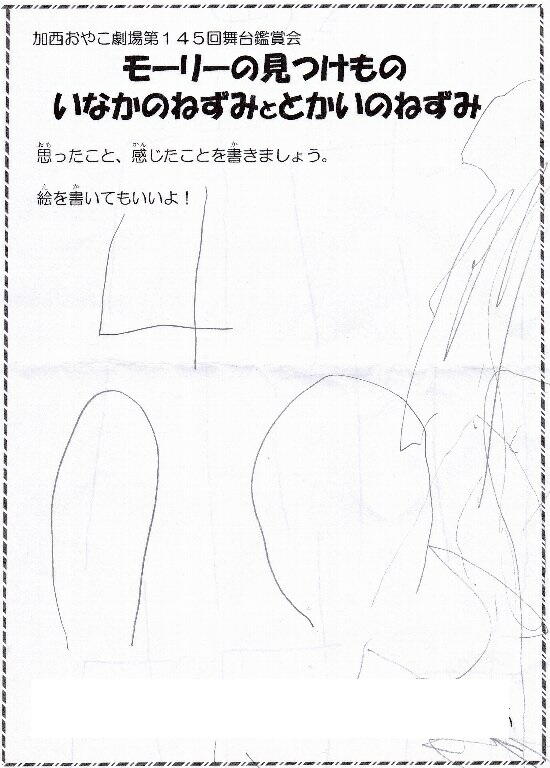 加西おやこ劇場第１４５回舞台鑑賞会
モーリーの見つけもの
いなかのねずみととかいのねずみ
思ったこと、感じたことを書きましょう。
絵を書いてもいいよ！
4